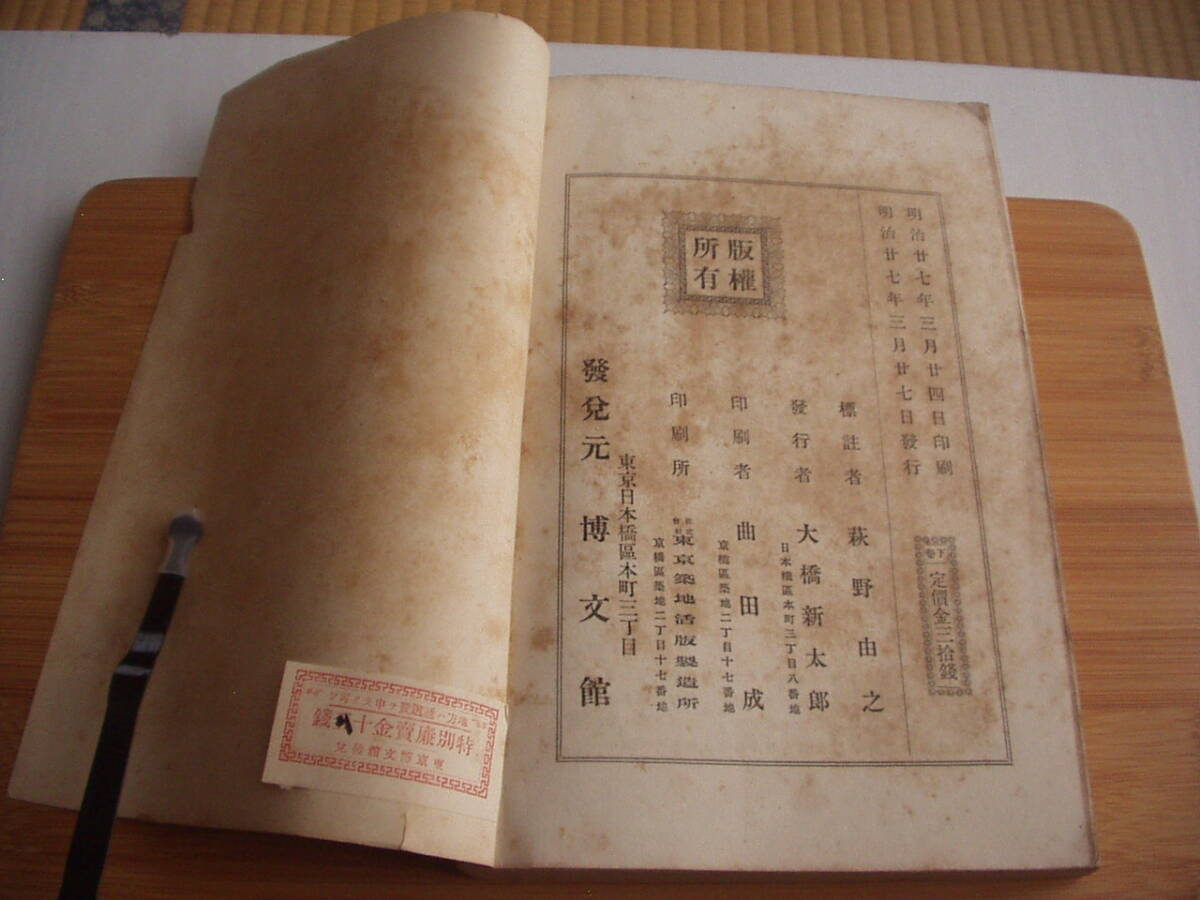 明治廿七年三月廿四日印刷
明治廿七年三月廿七日發行
下卷
定價金三拾錢
版權
所有
標註者 萩野由之
發行者 大橋新太郎
日本橋區本町三丁目八番地
印刷者 曲田成
京橋區築地二丁目十七番地
印刷所 株式會社東京築地活版製造所
京橋區築地二丁目十七番地
東京日本橋區本町三丁目
發兌元 博文館
特別廉賣金十錢
東京博文館發兌